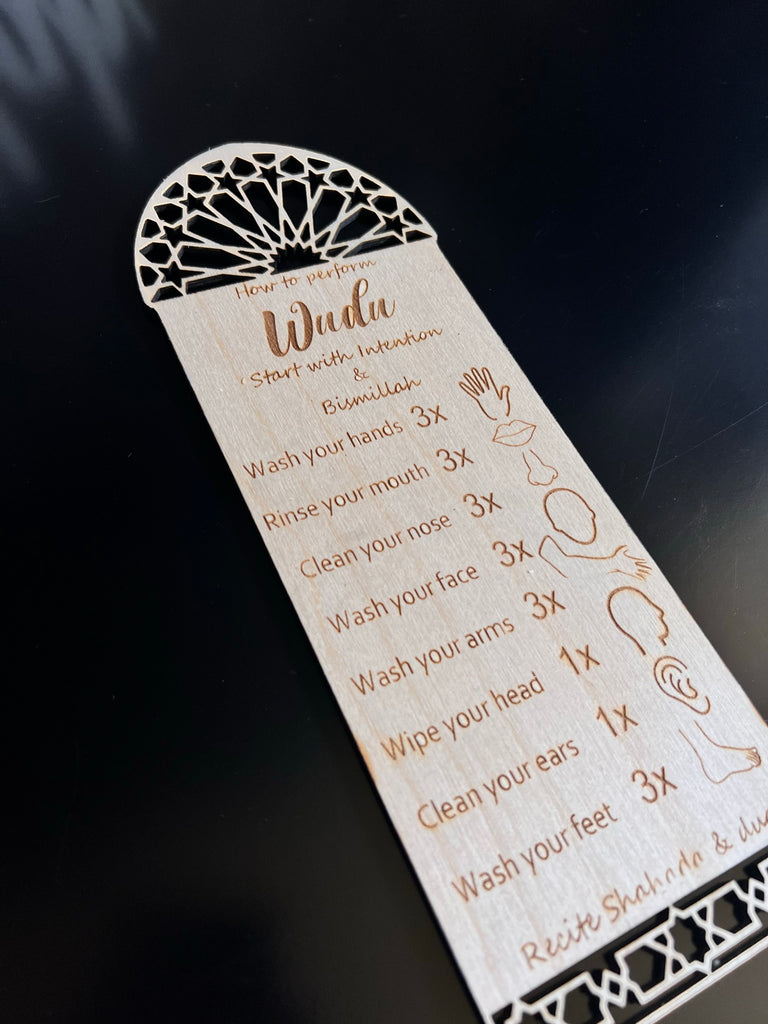 How to perform
Wudu
Start with Intention
&
Bismillah
Wash your hands 3x
Rinse your mouth 3x
Clean your nose 3x
Wash your face 3x
Wash your arms 3x
Wipe your head 1x
Clean your ears 1x
Wash your feet 3x
Recite Shahada &